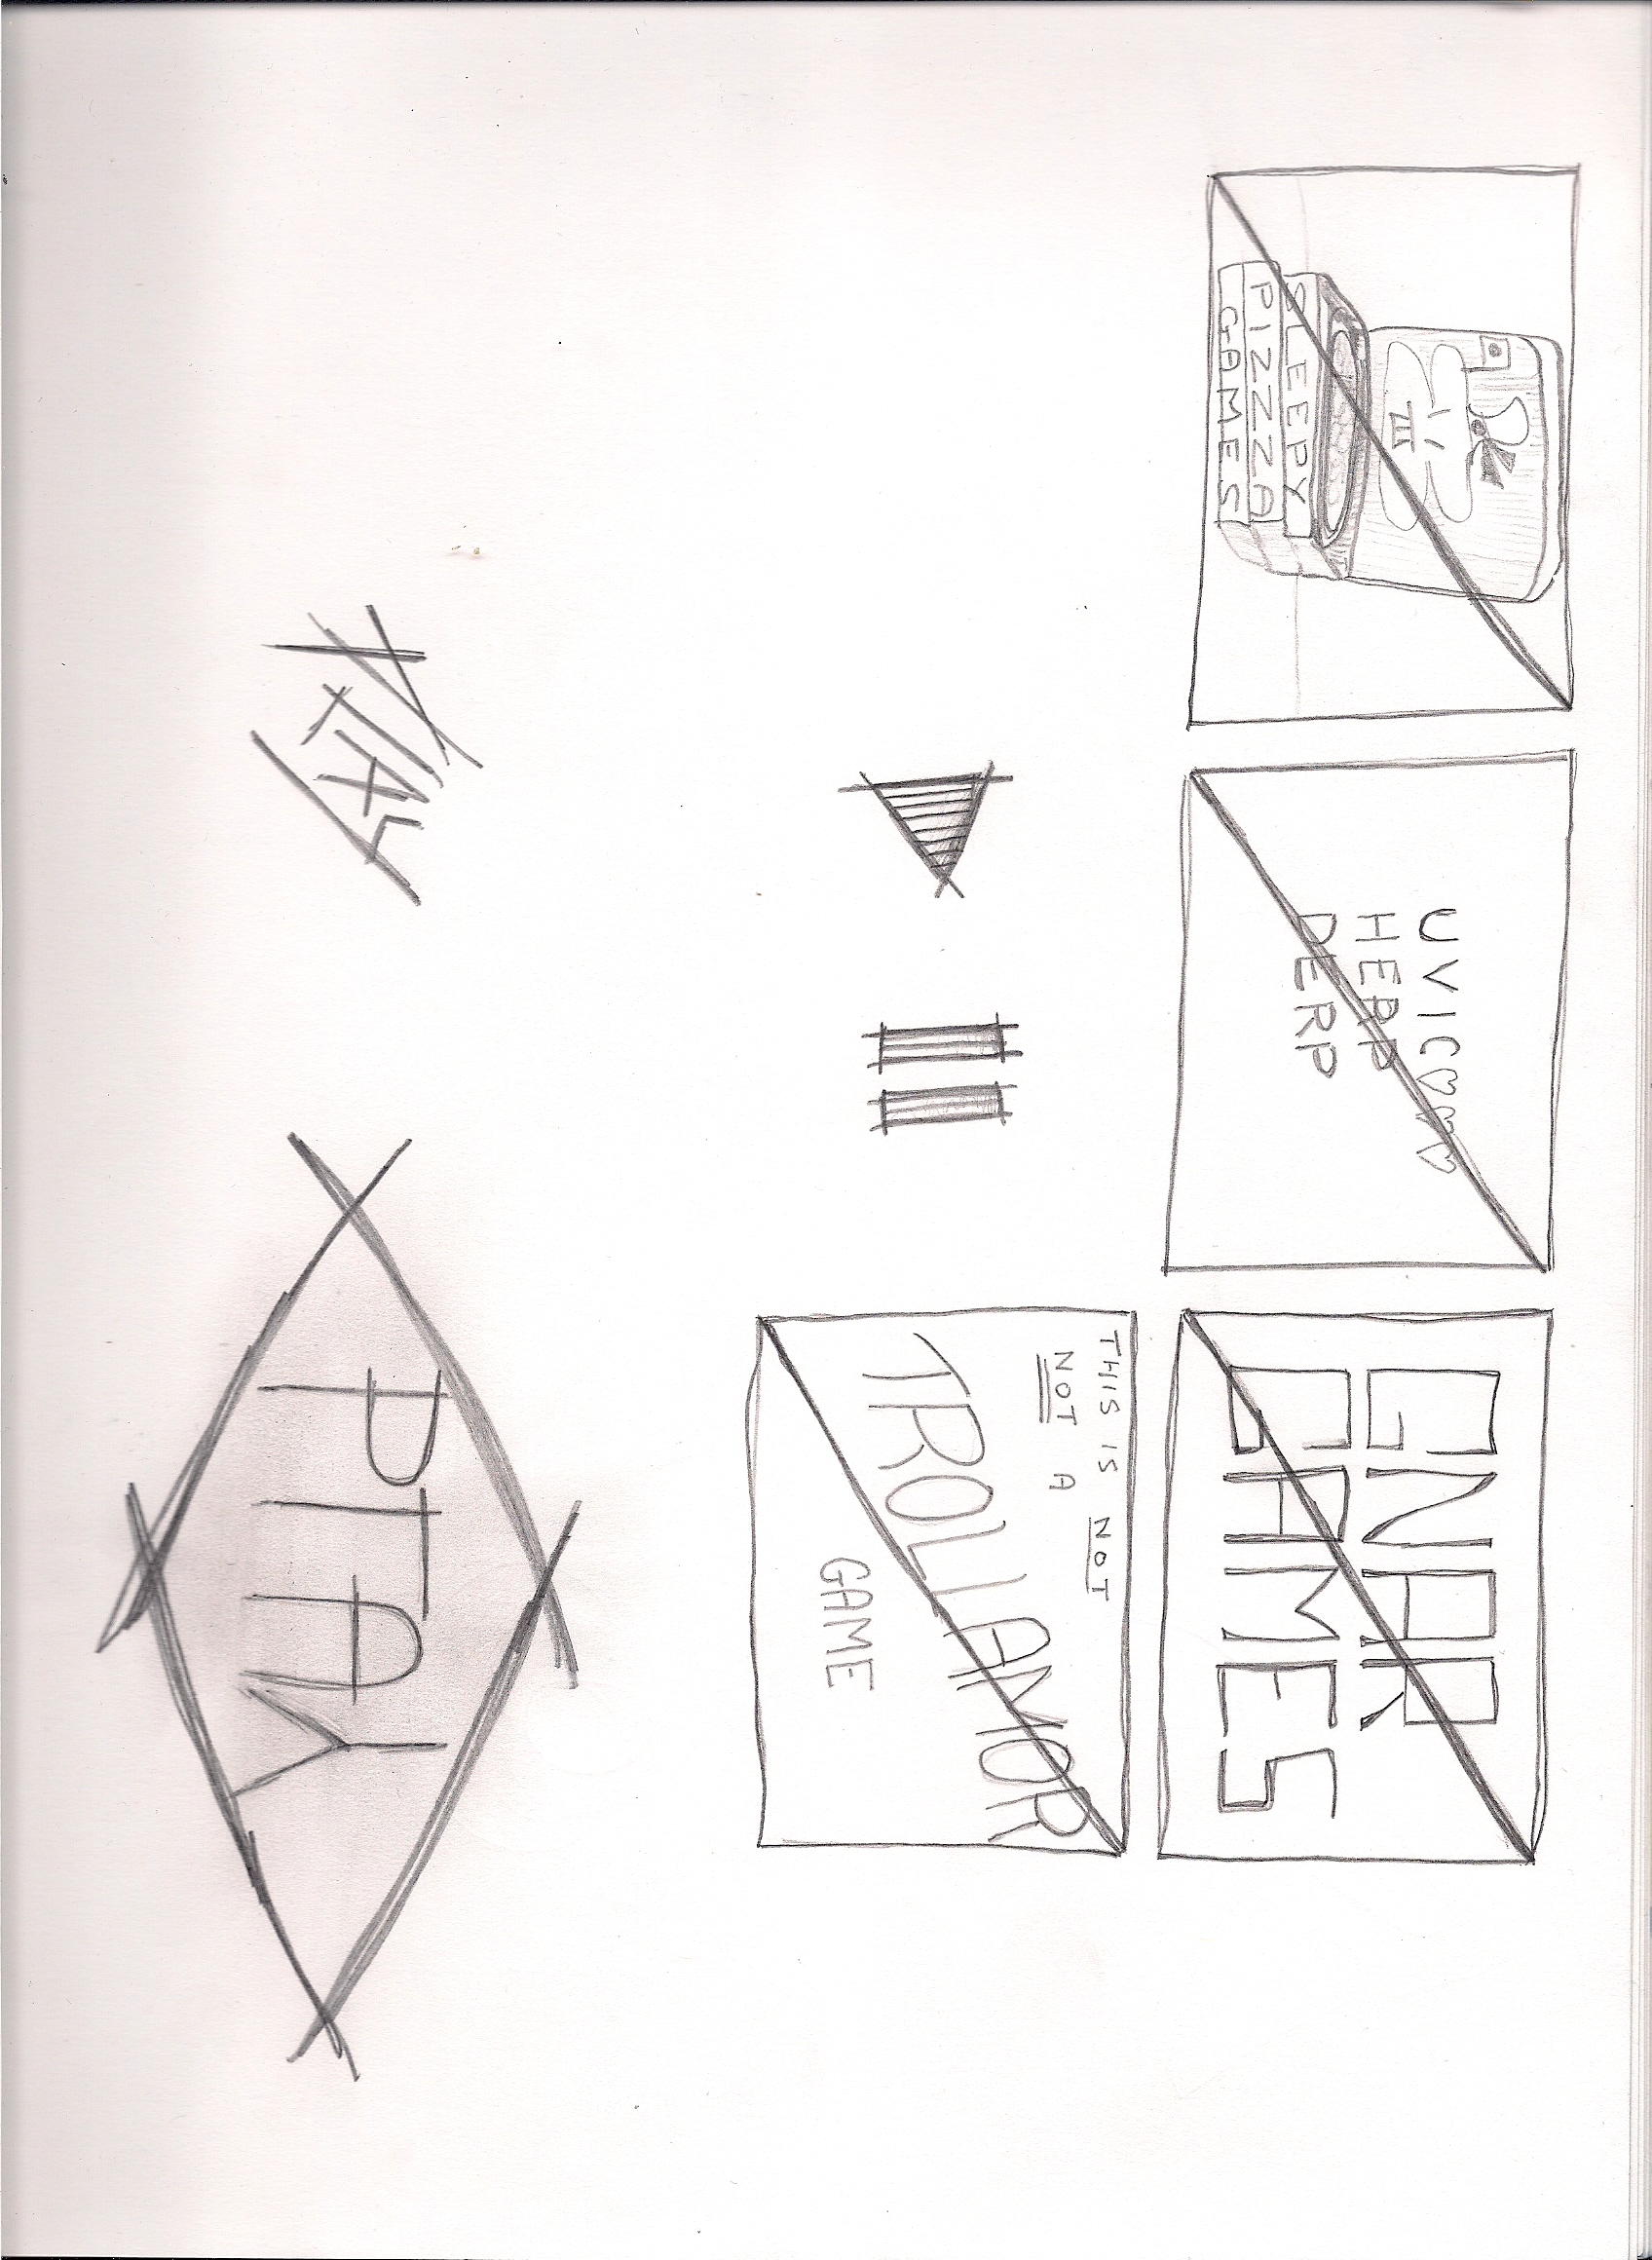 SLEEPY
PIZZZA
GAMES
UVIC♡♡♡♡
HERP
DERP
GNAR
GAMES
THIS IS NOT
NOT A
TROLLAMOR
GAME
PLAY
PLAY